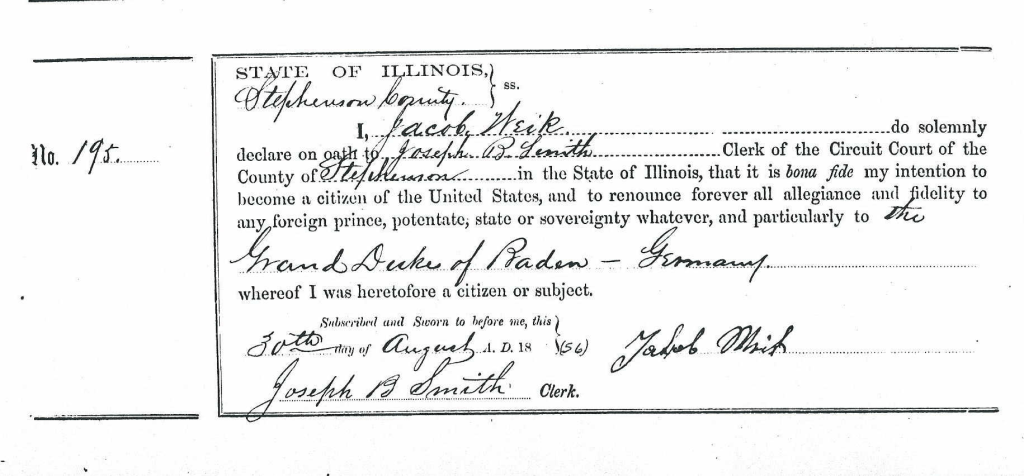 STATE OF ILLINOIS,
Stephenson County. } ss.
I, Jacob Weik. do solemnly
No. 195. declare on oath to Joseph B. Smith Clerk of the Circuit Court of the
County of Stephenson in the State of Illinois, that it is bona fide my intention to
become a citizen of the United States, and to renounce forever all allegiance and fidelity to
any foreign prince, potentate, state or sovereignty whatever, and particularly to the
Grand Duke of Baden – Germany.
whereof I was heretofore a citizen or subject.
Subscribed and Sworn to before me, this }
30th day of August A. D. 18 (56) Jakob Weik
Joseph B Smith Clerk.